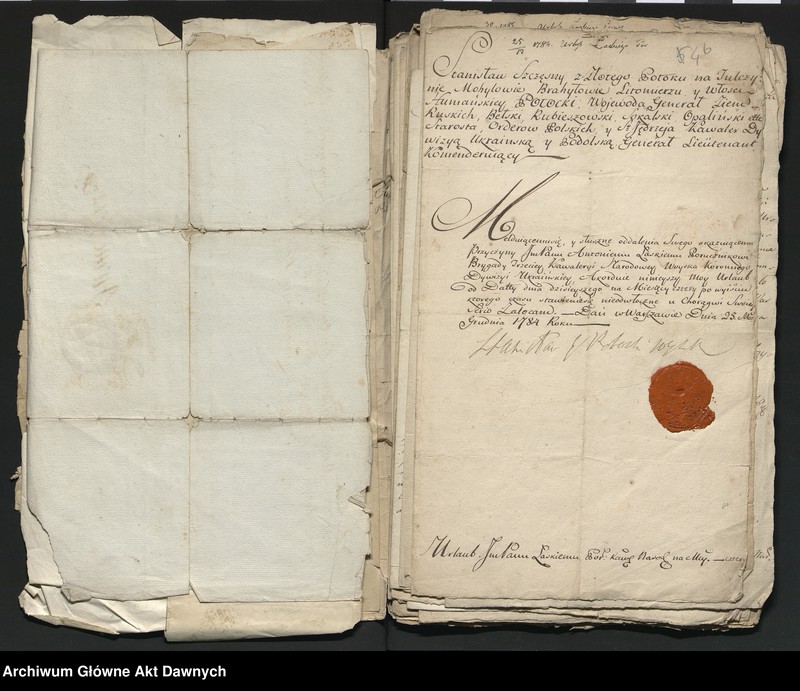 25/12 1784. Urlop
546
Stanisław Szczęsny z Złotego Potoku na Tulczy-
nie, Mohylowie Brahyłowie Litomierzu y Włości
Humańskiey POTOCKI, Woiewoda Generał Ziem
Ruskich, Bełski, Hrubieszowski, Sokalski Opaliński ettc
Starosta Orderow Polskich, y St. Jędrzeja Kawaler Dy
wizyą Ukrainską y Podolską Generał Lieütenant
Komenderuiący
Meldniącemusię, y słuszne oddalenia Swego okazuiącemu
Przyczyny JmPanu Antoniemu Laskiemu Porucznikowi
Brygady Trzeciey Kawaleryi Narodowey Woyska Koronnego
Dywizyi Ukrainskiey Akorduie ninieyszy moy Urlaub
od Datty dnia dzisieyszego na Miesięcy sześć po wyiściu
ktorego czasu stawienie się nieodwłoczne u Chorągwi Swoiey
Serio Zalecam. — Dan w Warszawie Dnia 25. M
Grudnia 1784 Roku
Stanisław Potocki
Urlaub JmPanu Laskiemu Por. Kawa na Msy. — sześć
Archiwum Główne Akt Dawnych